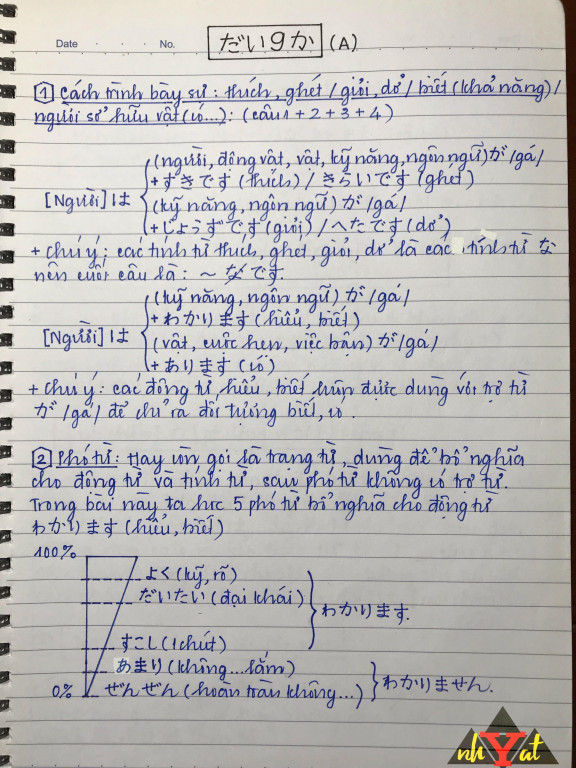 Date . . . No. だい9か (A)
1 Cách trình bày sự: thích, ghét/giỏi, dở/biết (khả năng)/
người sở hữu vật (có...): (câu 1 + 2 + 3 + 4)
(người, động vật, vật, kỹ năng, ngôn ngữ) が/gá/
+ すきです (thích) / きらいです (ghét)
[Người] は
(kỹ năng, ngôn ngữ) が/gá/
+ じょうずです (giỏi) / へたです (dở)
+ chú ý: các tính từ thích, ghét, giỏi, dở là các tính từ な
nên cuối câu là: ~ なです.
(kỹ năng, ngôn ngữ) が/gá/
+ わかります (hiểu, biết)
[Người] は
(vật, cuộc hẹn, việc bận) が/gá/
+ あります (có)
+ chú ý: các động từ hiểu, biết luôn được dùng với trợ từ
が/gá/ để chỉ ra đối tượng biết, có.
2 Phó từ: Hay còn gọi là trạng từ, dùng để bổ nghĩa
cho động từ và tính từ, sau phó từ không có trợ từ.
Trong bài này ta học 5 phó từ bổ nghĩa cho động từ
わかります (hiểu, biết)
100%
よく (kỹ, rõ)
だいたい (đại khái)
わかります.
すこし (1 chút)
あまり (không...lắm)
0% ぜんぜん (hoàn toàn không...)
わかりません.
nh Y at